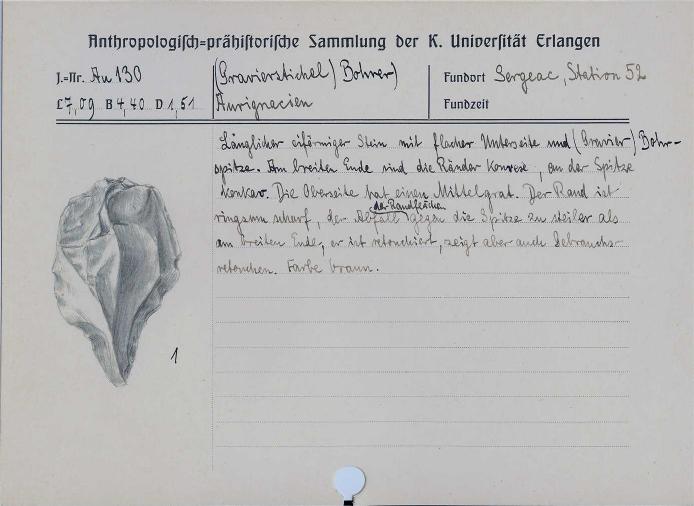 Anthropologisch=prähistorische Sammlung der K. Universität Erlangen
J.=Nr. Au 130
(Gravierstichel) Bohrer)
Fundort Sergeac, Station 52
L 7,09 B 4,40 D 1,51
Aurignacien
Fundzeit
Länglicher eiförmiger Stein mit flacher Unterseite und (Gravier-) Bohr-
spitze. Am breiten Ende sind die Ränder konvex, an der Spitze
konkav. Die Oberseite hat einen Mittelgrat. Der Rand ist
der Randflächen
ringsum scharf, der Abfall gegen die Spitze zu steiler als
am breiten Ende, er ist retouchiert, zeigt aber auch Gebrauchs-
retouchen. Farbe braun.
1